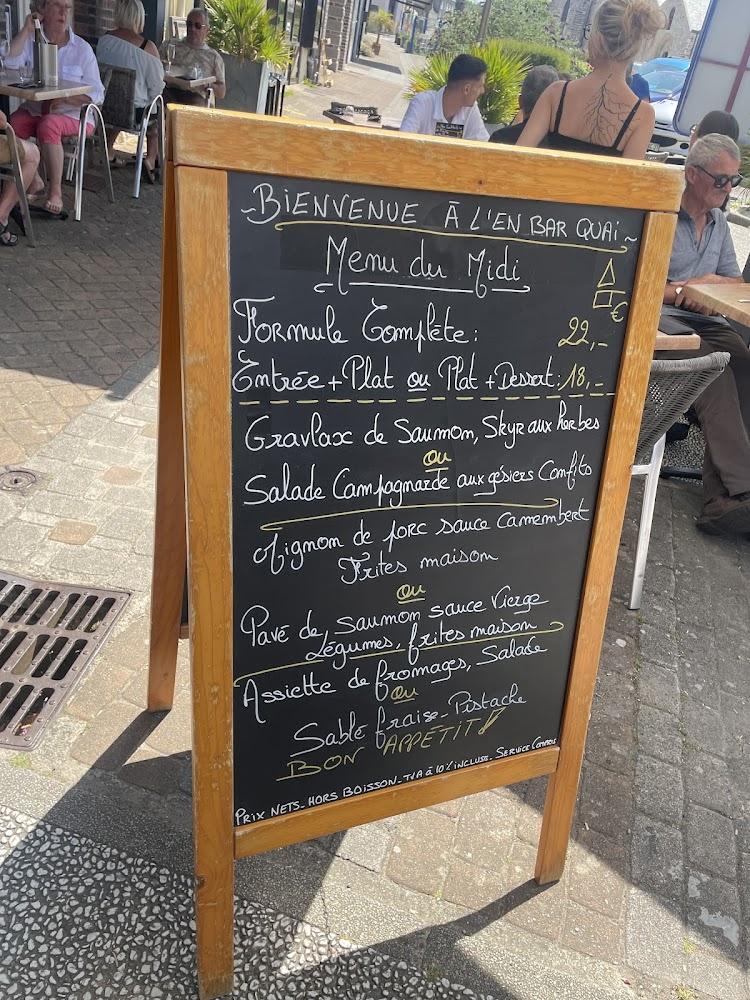 ~BiENVENUE À L'EN BAR QUAI~
Menu du Midi
€
Formule Complète: 22,-
Entrée + Plat ou Plat + Dessert: 18,-
Gravlax de Saumon, Skyr aux herbes
ou
Salade Campagnarde aux gésiers Confits
Mignon de porc sauce Camembert
Frites maison
ou
Pavé de saumon sauce Vierge
Légumes, frites maison
Assiette de fromages, Salade
ou
Sablé fraise-Pistache
BON APPÉTIT!
PRIX NETS_HORS BOISSON_TVA à 10% INCLUSE_ SERVICE COMPRIS